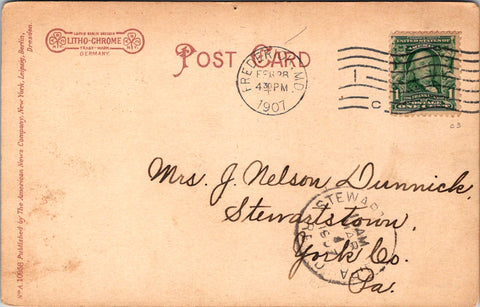 LEIPZIG BERLIN DRESDEN
LITHO-CHROME
TRADE MARK
GERMANY.
POST CARD
FREDERICK, MD.
FEB 28
4 30 PM
1907
C
ONE CENT
Mrs. J. Nelson Dunnick,
Stewartstown,
York Co.
Pa.
STEWART
AM
MAR
1
PA
REC'D
No A 10938 Published by The American News Company, New York, Leipzig, Berlin,
Dresden.